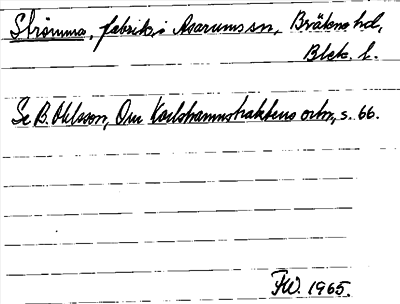 Strömma, fabrik, i Asarums sn, Bräkne hd,
Blek. l.
Se B. Ohlsson, Om Karlshamnstraktens ortn., s. 66.
FW. 1965.